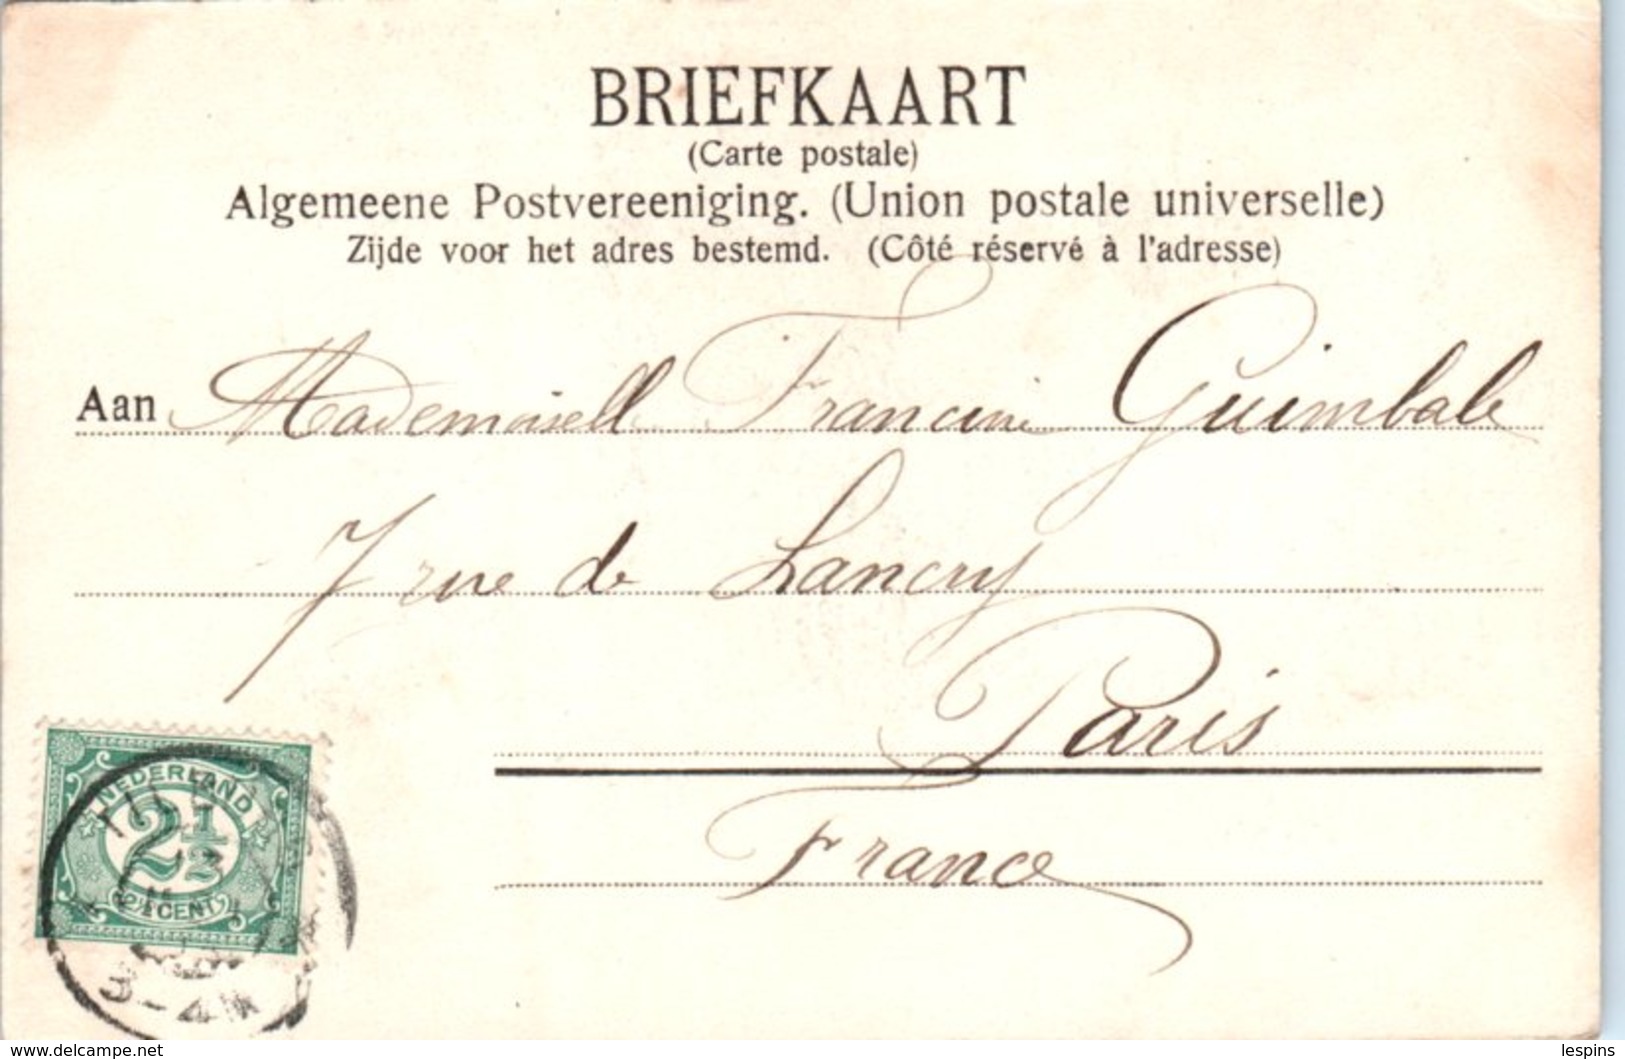 BRIEFKAART
(Carte postale)
Algemeene Postvereeniging. (Union postale universelle)
Zijde voor het adres bestemd. (Côté réservé à l'adresse)
Aan Mademoisell Francine Guimbale
7 rue de Lancry
Paris
France
NEDERLAND
2 1/2
2½ CENT
3-4N
www.delcampe.net
lespins